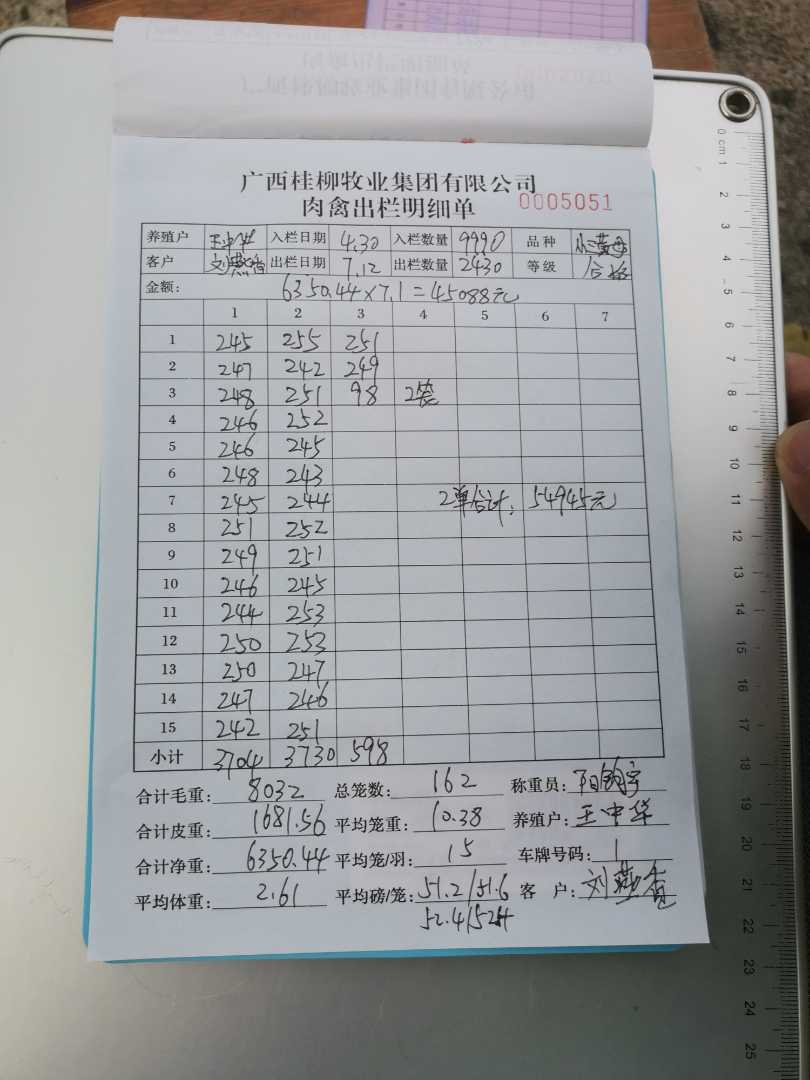 广西桂柳牧业集团有限公司
肉禽出栏明细单 0005051
养殖户 王中华 入栏日期 4.30 入栏数量 9990 品种
客户 刘燕香 出栏日期 7.12 出栏数量 2430 等级 合格
金额: 6350.44×7.1=45088元
1 2 3 4 5 6 7
1 245 255 251
2 247 242 249
3 248 251 98 2笼
4 246 252
5 246 245
6 248 243
7 245 244 2单合计: 54945元
8 251 252
9 249 251
10 246 245
11 244 253
12 250 253
13 250 247
14 247 246
15 242 251
小计 3704 3730 598
合计毛重: 8032 总笼数: 162 称重员:
合计皮重: 1681.56 平均笼重: 10.38 养殖户: 王中华
合计净重: 6350.44 平均笼/羽: 15 车牌号码: 1
平均体重: 2.61 平均磅/笼: 51.2/51.6 客 户: 刘燕香